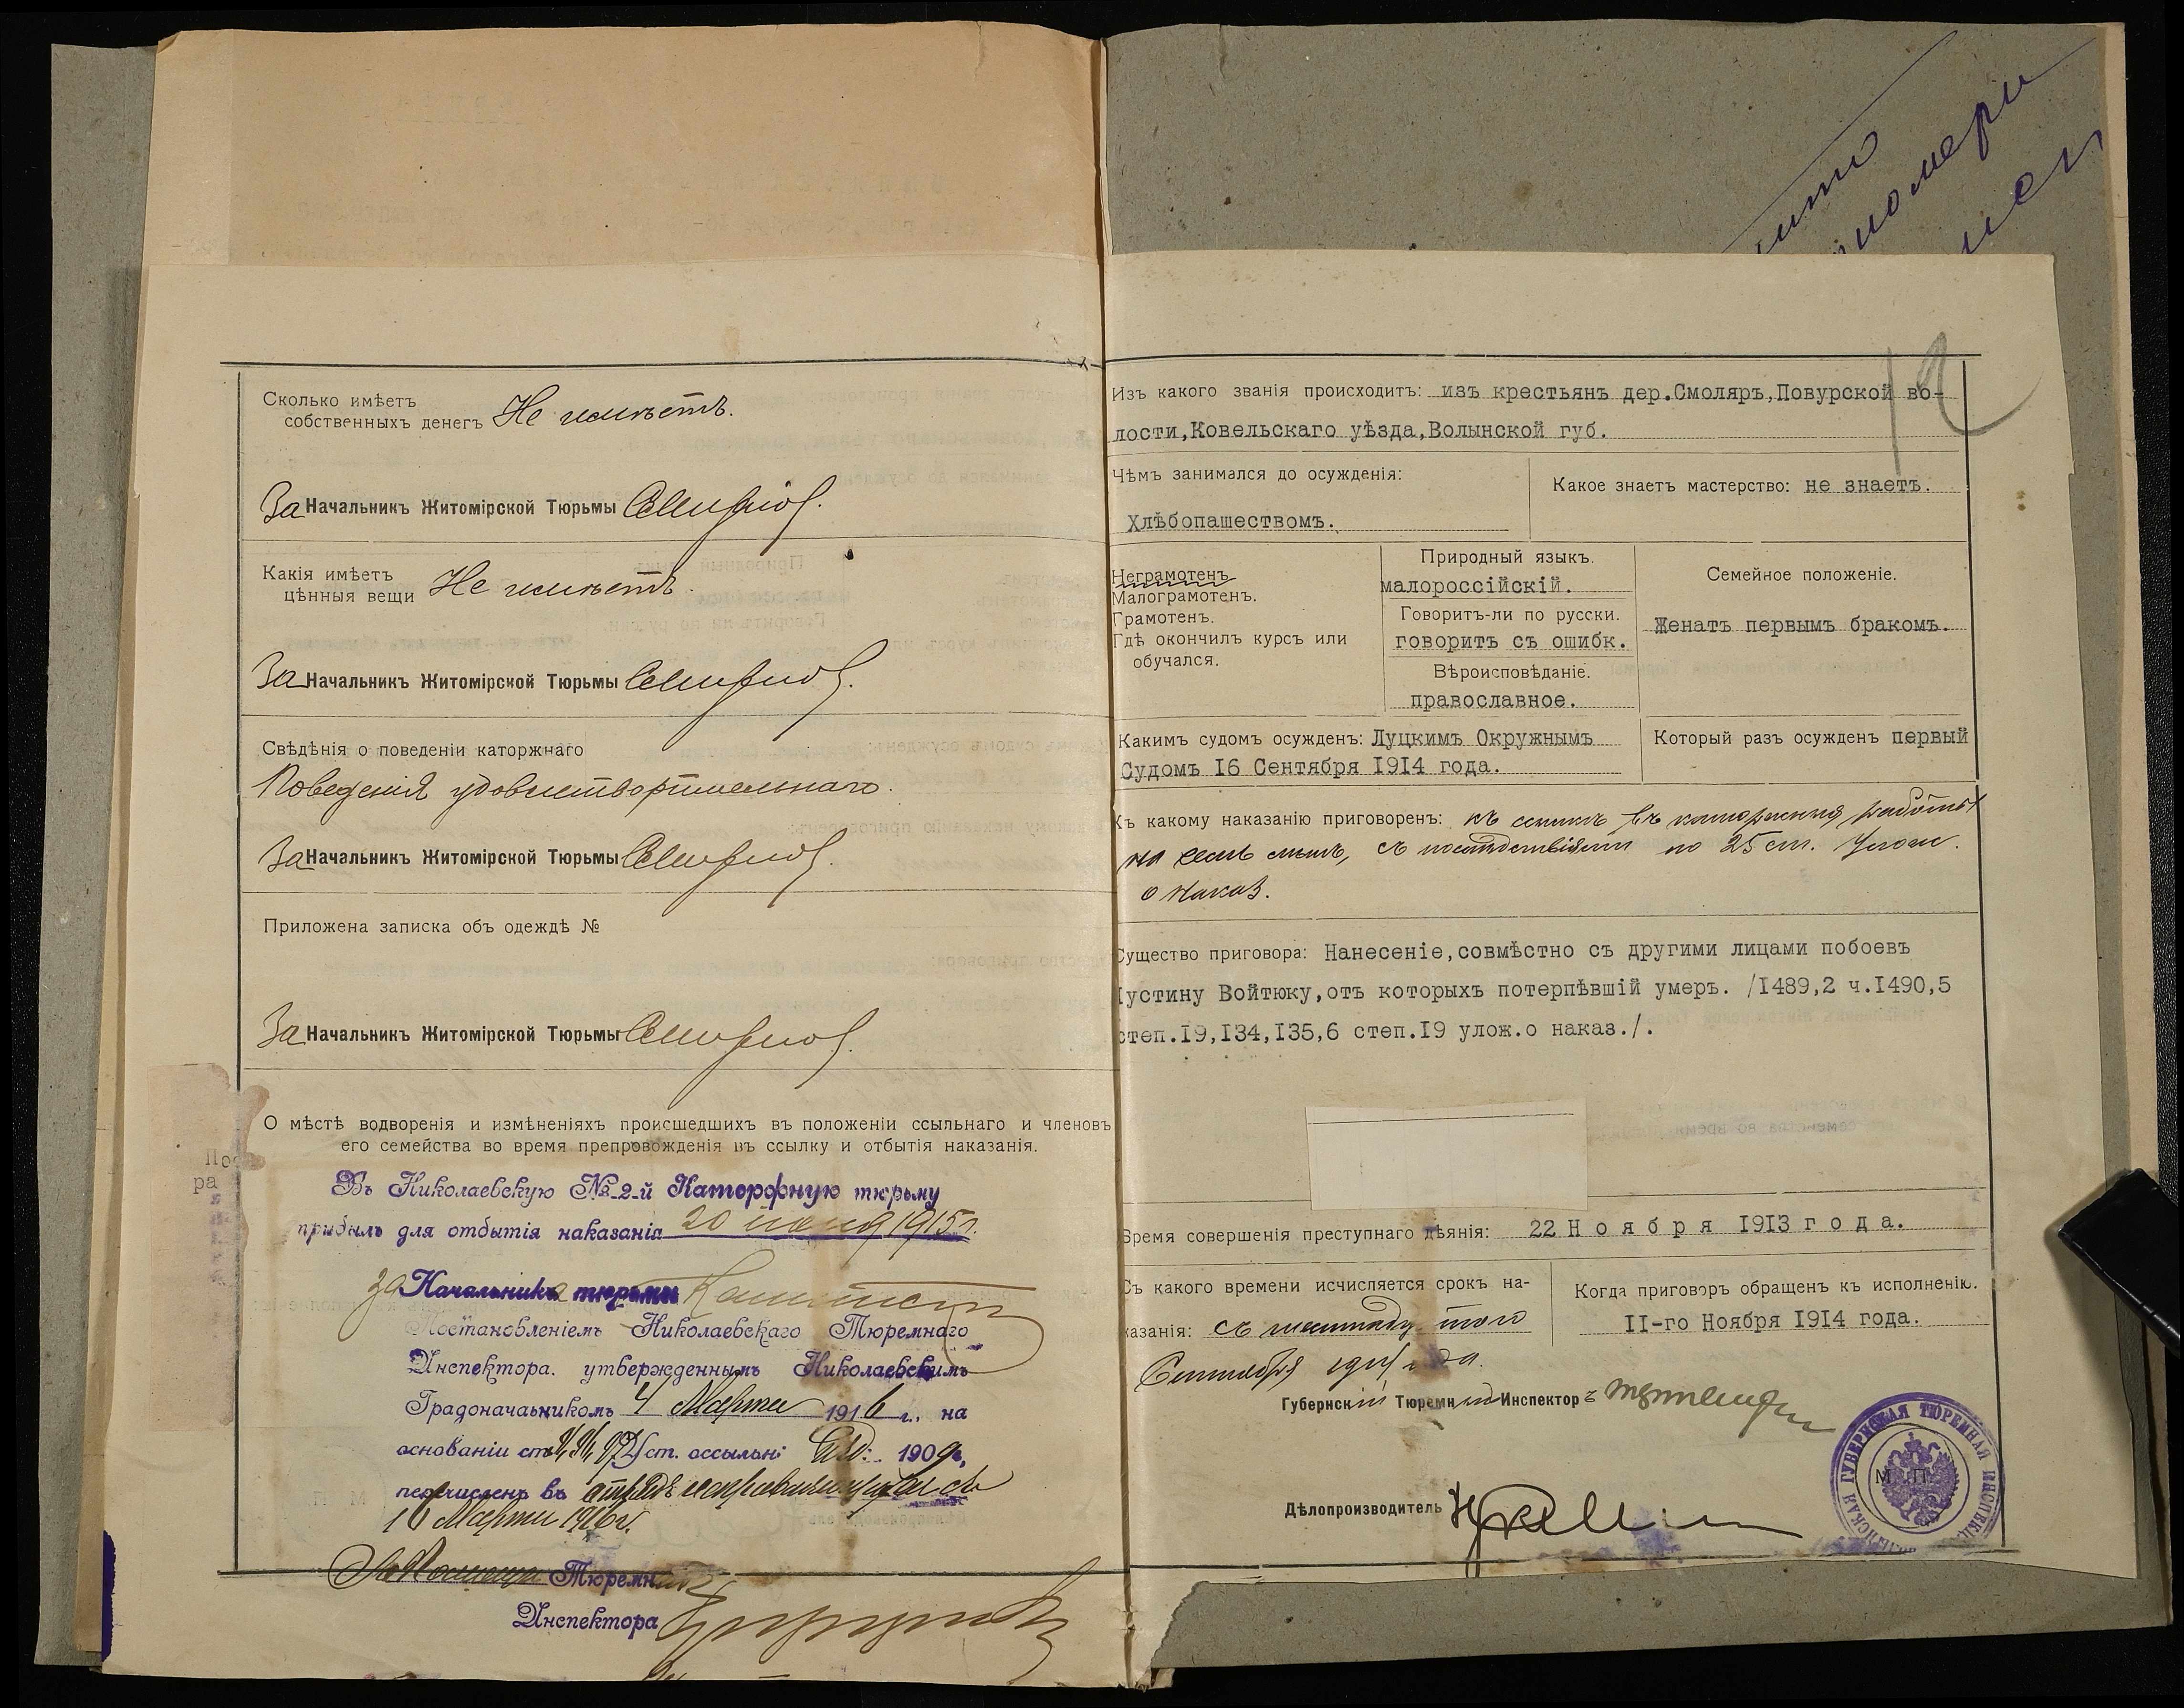 Сколько имѣетъ
собственныхъ денегъ Не имѣетъ.
За Начальникъ Житомірской Тюрьмы
Какія имѣетъ
цѣнныя вещи Не имѣетъ.
За Начальникъ Житомірской Тюрьмы
Свѣдѣнія о поведеніи каторжнаго
Поведенія удовлетворительнаго.
За Начальникъ Житомірской Тюрьмы
Приложена записка объ одеждѣ №
За Начальникъ Житомірской Тюрьмы
О мѣстѣ водворенія и измѣненіяхъ происшедшихъ въ положеніи ссыльнаго и членовъ
его семейства во время препровожденія въ ссылку и отбытія наказанія.
Въ Николаевскую № 2-й Каторжную тюрьму
прибылъ для отбытія наказанія 20 1915 г.
За Начальника тюрьмы
Постановленіемъ Николаевскаго Тюремнаго
Инспектора, утвержденнымъ Николаевскимъ
Градоначальникомъ 4 Марта 1916 г., на
основаніи ст. уст. о ссыльн. изд. 1909 г.,
перечисленъ въ отрядъ исправляющихся съ
Марта 1916 г.
Тюремнаго
Инспектора
12
Изъ какого званія происходитъ: изъ крестьянъ дер.Смоляръ,Повурской во-
лости,Ковельскаго уѣзда,Волынской губ.
Чѣмъ занимался до осужденія:
Хлѣбопашествомъ.
Какое знаетъ мастерство: не знаетъ.
Неграмотенъ
Малограмотенъ.
Грамотенъ.
Гдѣ окончилъ курсъ или
обучался.
Природный языкъ.
малороссійскій.
Говоритъ-ли по русски.
говоритъ съ ошибк.
Вѣроисповѣданіе.
православное.
Семейное положеніе.
Женатъ первымъ бракомъ.
Какимъ судомъ осужденъ: Луцкимъ Окружнымъ
Судомъ 16 Сентября 1914 года.
Который разъ осужденъ первый
Къ какому наказанію приговоренъ: къ ссылкѣ въ каторжныя работы
на семь лѣтъ, съ послѣдствіями по 25 ст. Улож.
о наказ.
Существо приговора: Нанесеніе,совмѣстно съ другими лицами побоевъ
устину Войтюку,отъ которыхъ потерпѣвшій умеръ. /1489,2 ч.1490,5
степ.19,134,135,6 степ.19 улож.о наказ./.
Время совершенія преступнаго дѣянія: 22 Ноября 1913 года.
Съ какого времени исчисляется срокъ на-
казанія: съ
Сентября 1914 года.
Когда приговоръ обращенъ къ исполненію.
11-го Ноября 1914 года.
Губернскій Тюремный Инспекторъ
Дѣлопроизводитель
ГУБЕРНСКАЯ ТЮРЕМНАЯ ИНСПЕКЦ
М. П.